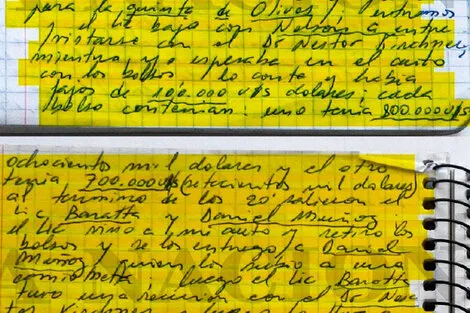 para la quinta de Olivos y entramos
y el Lic bajo con Nelson a entre
vistarse con el Dr Nestor Kirchner,
mientras yo esperaba en el auto
con los bolsos, lo conte y habia
fajos de 100.000 U/S dolares; cada
bolso contenian: uno tenia 800.000 U/S
ochocientos mil dolares y el otro
tenia 700.000 U/S (setecientos mil dolares)
al termino de los 20' salieron el
Lic Baratta y Daniel Muñoz,
el Lic vino a mi auto y retiro los
bolsos y se los entrego a Daniel
Muñoz, quien lo subio a una
camioneta, luego el Lic Baratta
tuvo una reunion con el Dr Nes
tor Kirchner y luego